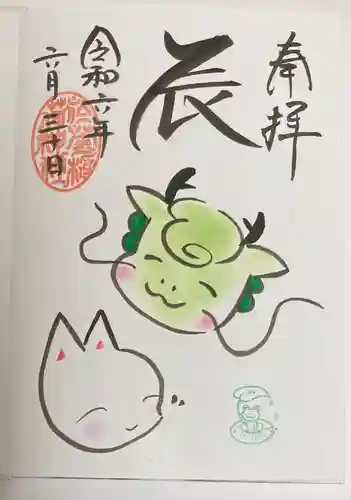 奉拝
辰
令和六年
六月三十日